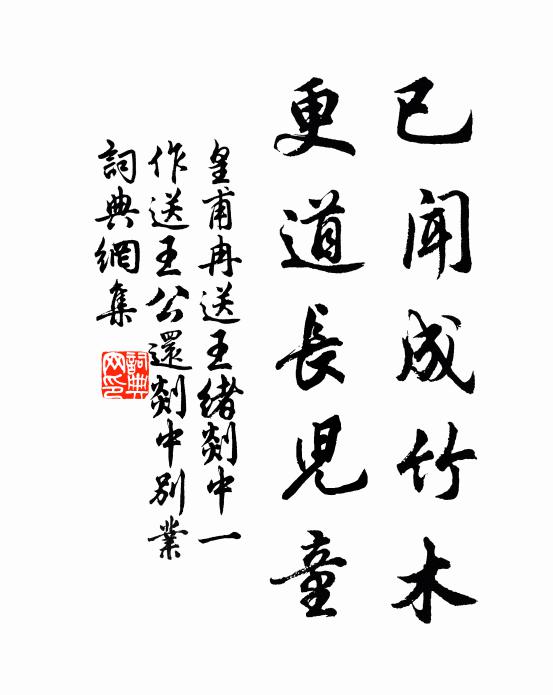 已聞成竹木
更道長兒童
皇甫冉送王緒剡中一
作送王公還剡中別業
詞典網集
詞典網印